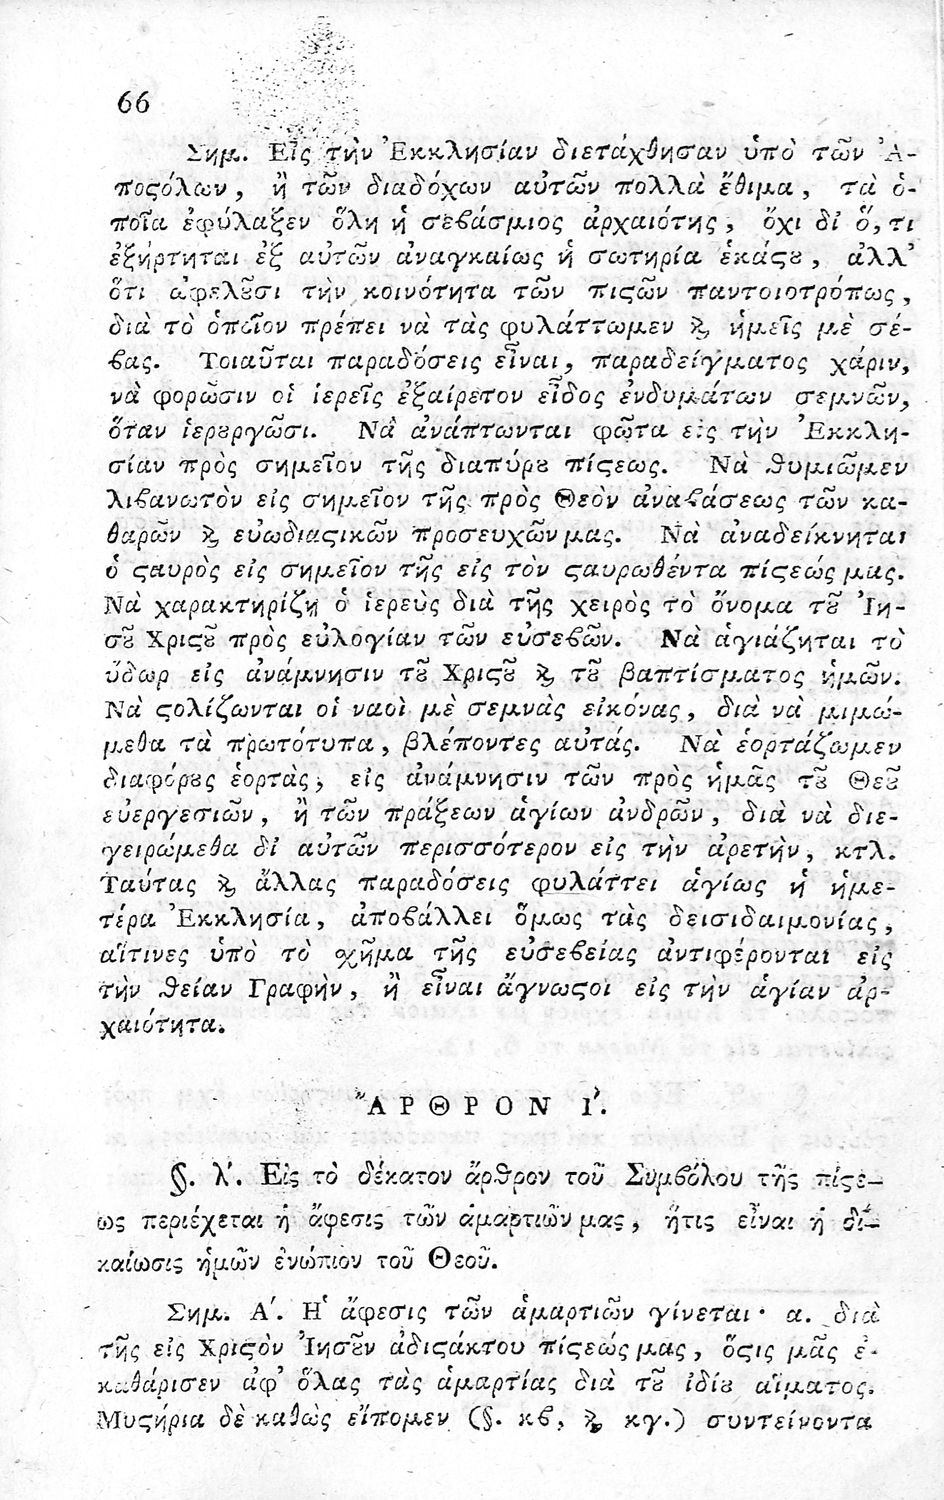 66
Σημ. Εἰς τὴν Ἐκκλησίαν διετάχθησαν ὑπὸ τῶν Ἀ-
ποϛόλων, ἢ τῶν διαδόχων αὐτῶν πολλὰ ἔθιμα, τὰ ὁ-
ποῖα ἐφύλαξεν ὅλη ἡ σεβάσμιος ἀρχαιότης, ὄχι δἰ ὅ,τι
ἐξήρτηται ἐξ αὐτῶν ἀναγκαίως ἡ σωτηρία ἑκάϛȣ, ἀλλ'
ὅτι ὠφελȣ͂σι τὴν κοινότητα τῶν πιϛῶν παντοιοτρόπως,
διὰ τὸ ὁποῖον πρέπει νὰ τὰς φυλάττωμεν ϗ ἡμεῖς μὲ σέ-
βας. Τοιαῦται παραδόσεις εἶναι, παραδείγματος χάριν,
νὰ φορῶσιν οἱ ἱερεῖς ἐξαίρετον εἶδος ἐνδυμάτων σεμνῶν,
ὅταν ἱερȣργῶσι. Νὰ ἀνάπτωνται φῶτα εἰς τὴν Ἐκκλη-
σίαν πρὸς σημεῖον τῆς διαπύρȣ πίϛεως. Νὰ θυμιῶμεν
λιβανωτὸν εἰς σημεῖον τῆς πρὸς Θεὸν ἀναβάσεως τῶν κα-
θαρῶν ϗ εὐωδιαϛικῶν προσευχῶν μας. Νὰ ἀναδείκνηται
ὁ ϛαυρὸς εἰς σημεῖον τῆς εἰς τὸν ϛαυρωθέντα πίϛεώς μας.
Νὰ χαρακτηρίζῃ ὁ ἱερεὺς διὰ τῆς χειρὸς τὸ ὄνομα τȣ͂ Ἰη-
σȣ͂ Χριϛȣ͂ πρὸς εὐλογίαν τῶν εὐσεβῶν. Νὰ ἁγιάζηται τὸ
ὕδωρ εἰς ἀνάμνησιν τȣ͂ Χριϛȣ͂ ϗ τȣ͂ βαπτίσματος ἡμῶν.
Νὰ ϛολίζωνται οἱ ναοὶ μὲ σεμνὰς εἰκόνας, διὰ νὰ μιμώ-
μεθα τὰ πρωτότυπα, βλέποντες αὐτάς. Νὰ ἑορτάζωμεν
διαφόρȣς ἑορτὰς, εἰς ἀνάμνησιν τῶν πρὸς ἡμᾶς τȣ͂ Θεȣ͂
εὐεργεσιῶν, ἢ τῶν πράξεων ἁγίων ἀνδρῶν, διὰ νὰ διε-
γειρώμεθα δἰ αὐτῶν περισσότερον εἰς τὴν ἀρετὴν, κτλ.
Ταύτας ϗ ἄλλας παραδόσεις φυλάττει ἁγίως ἡ ἡμε-
τέρα Ἐκκλησία, ἀποβάλλει ὅμως τὰς δεισιδαιμονίας,
αἵτινες ὑπὸ τὸ σχῆμα τῆς εὐσεβείας ἀντιφέρονται εἰς
τὴν θείαν Γραφὴν, ἢ εἶναι ἄγνωϛοι εἰς τὴν ἁγίαν ἀρ-
χαιότητα.
ἌΡΘΡΟΝ Ι'.
§. λ'. Εἰς τὸ δέκατον ἄρθρον τοῦ Συμβόλου τῆς πίϛε-
ως περιέχεται ἡ ἄφεσις τῶν ἁμαρτιῶν μας, ἥτις εἶναι ἡ δι-
καίωσις ἡμῶν ἐνώπιον τοῦ Θεοῦ.
Σημ. Α'. Ἡ ἄφεσις τῶν ἁμαρτιῶν γίνεται· α. διὰ
τῆς εἰς Χριϛὸν Ἰησȣ͂ν ἀδιϛάκτου πίϛεώς μας, ὅϛις μᾶς ἐ-
καθάρισεν ἀφ' ὅλας τὰς ἁμαρτίας διὰ τȣ͂ ἰδίȣ αἵματος.
Μυϛήρια δὲ καθὼς εἴπομεν (§. κβ, ϗ κγ.) συντείνοντα